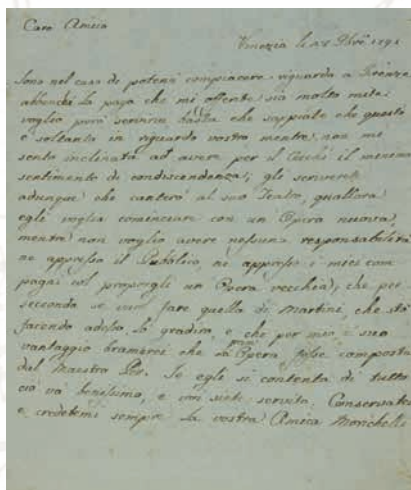 Caro Amico
Venezia li 28 9bre 1791
Sono nel caso di potervi compiacere riguardo a Firenze
abbenchè la paga che mi offerite sia molto mite:
voglio però servirvi basta che sappiate che questo
è soltanto in riguardo vostro mentre non mi
sento inclinata ad avere per il Cecchi il menomo
sentimento di condiscendenza; gli scriverete
adunque che canterò al suo Teatro, quallora
egli voglia cominciare con un Opera nuova,
mentre non voglio avere nessuna responsabilità
ne appresso il Publico, ne appresso i miei com
pagni col proporgli un Opera vecchia; che per
seconda se vuol fare quella di Martini, che stà
facendo adesso, la gradirò, e che per mio e suo
vantaggio bramerei che la prima Opera fosse composta
dal Maestro Per. Se egli si contenta di tutto
ciò và benissimo, e voi siete servito. Conservatevi
e credetemi sempre La vostra Amica Morichelli